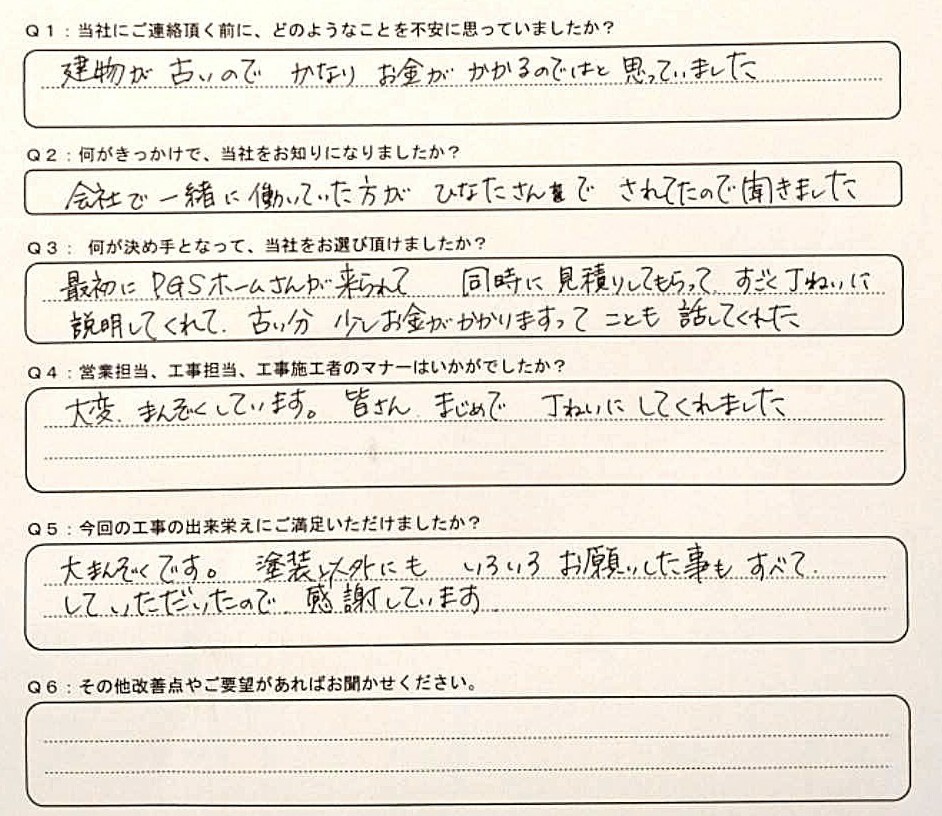 Q1：当社にご連絡頂く前に、どのようなことを不安に思っていましたか？
建物が 古いので かなり お金が かかるのではと 思っていました
Q2：何がきっかけで、当社をお知りになりましたか？
会社で 一緒に 働いていた方が ひなたさんで されてたので聞きました
Q3： 何が決め手となって、当社をお選び頂けましたか？
最初に PGSホームさんが来られて 同時に 見積りしてもらって すごく丁ねいに
説明してくれて、古い分 少しお金がかかりますって ことも 話してくれた
Q4：営業担当、工事担当、工事施工者のマナーはいかがでしたか？
大変、まんぞくしています。皆さん、まじめで 丁ねいに してくれました
Q5：今回の工事の出来栄えにご満足いただけましたか？
大まんぞくです。 塗装以外にも いろいろ お願いした事も すべて、
して いただいたので、感謝しています
Q6：その他改善点やご要望があればお聞かせください。